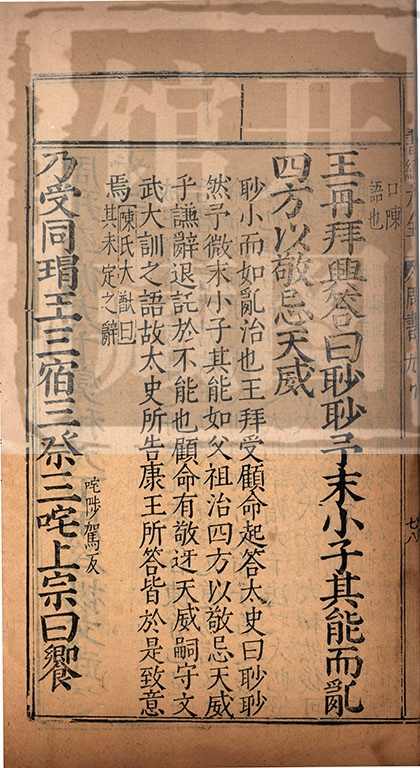 口陳
語也
王再拜興答曰眇眇予末小子其能而亂
四方以敬忌天威
眇小而如亂治也王拜受顧命起答太史曰眇眇
然予微末小子其能如父祖治四方以敬忌天威
乎謙辭退託於不能也顧命有敬迓天威嗣守文
武大訓之語故太史所告康王所答皆於是致意
焉陳氏大猷曰
其未定之辭
乃受同瑁王三宿三祭三咤上宗曰饗
咤陟駕反